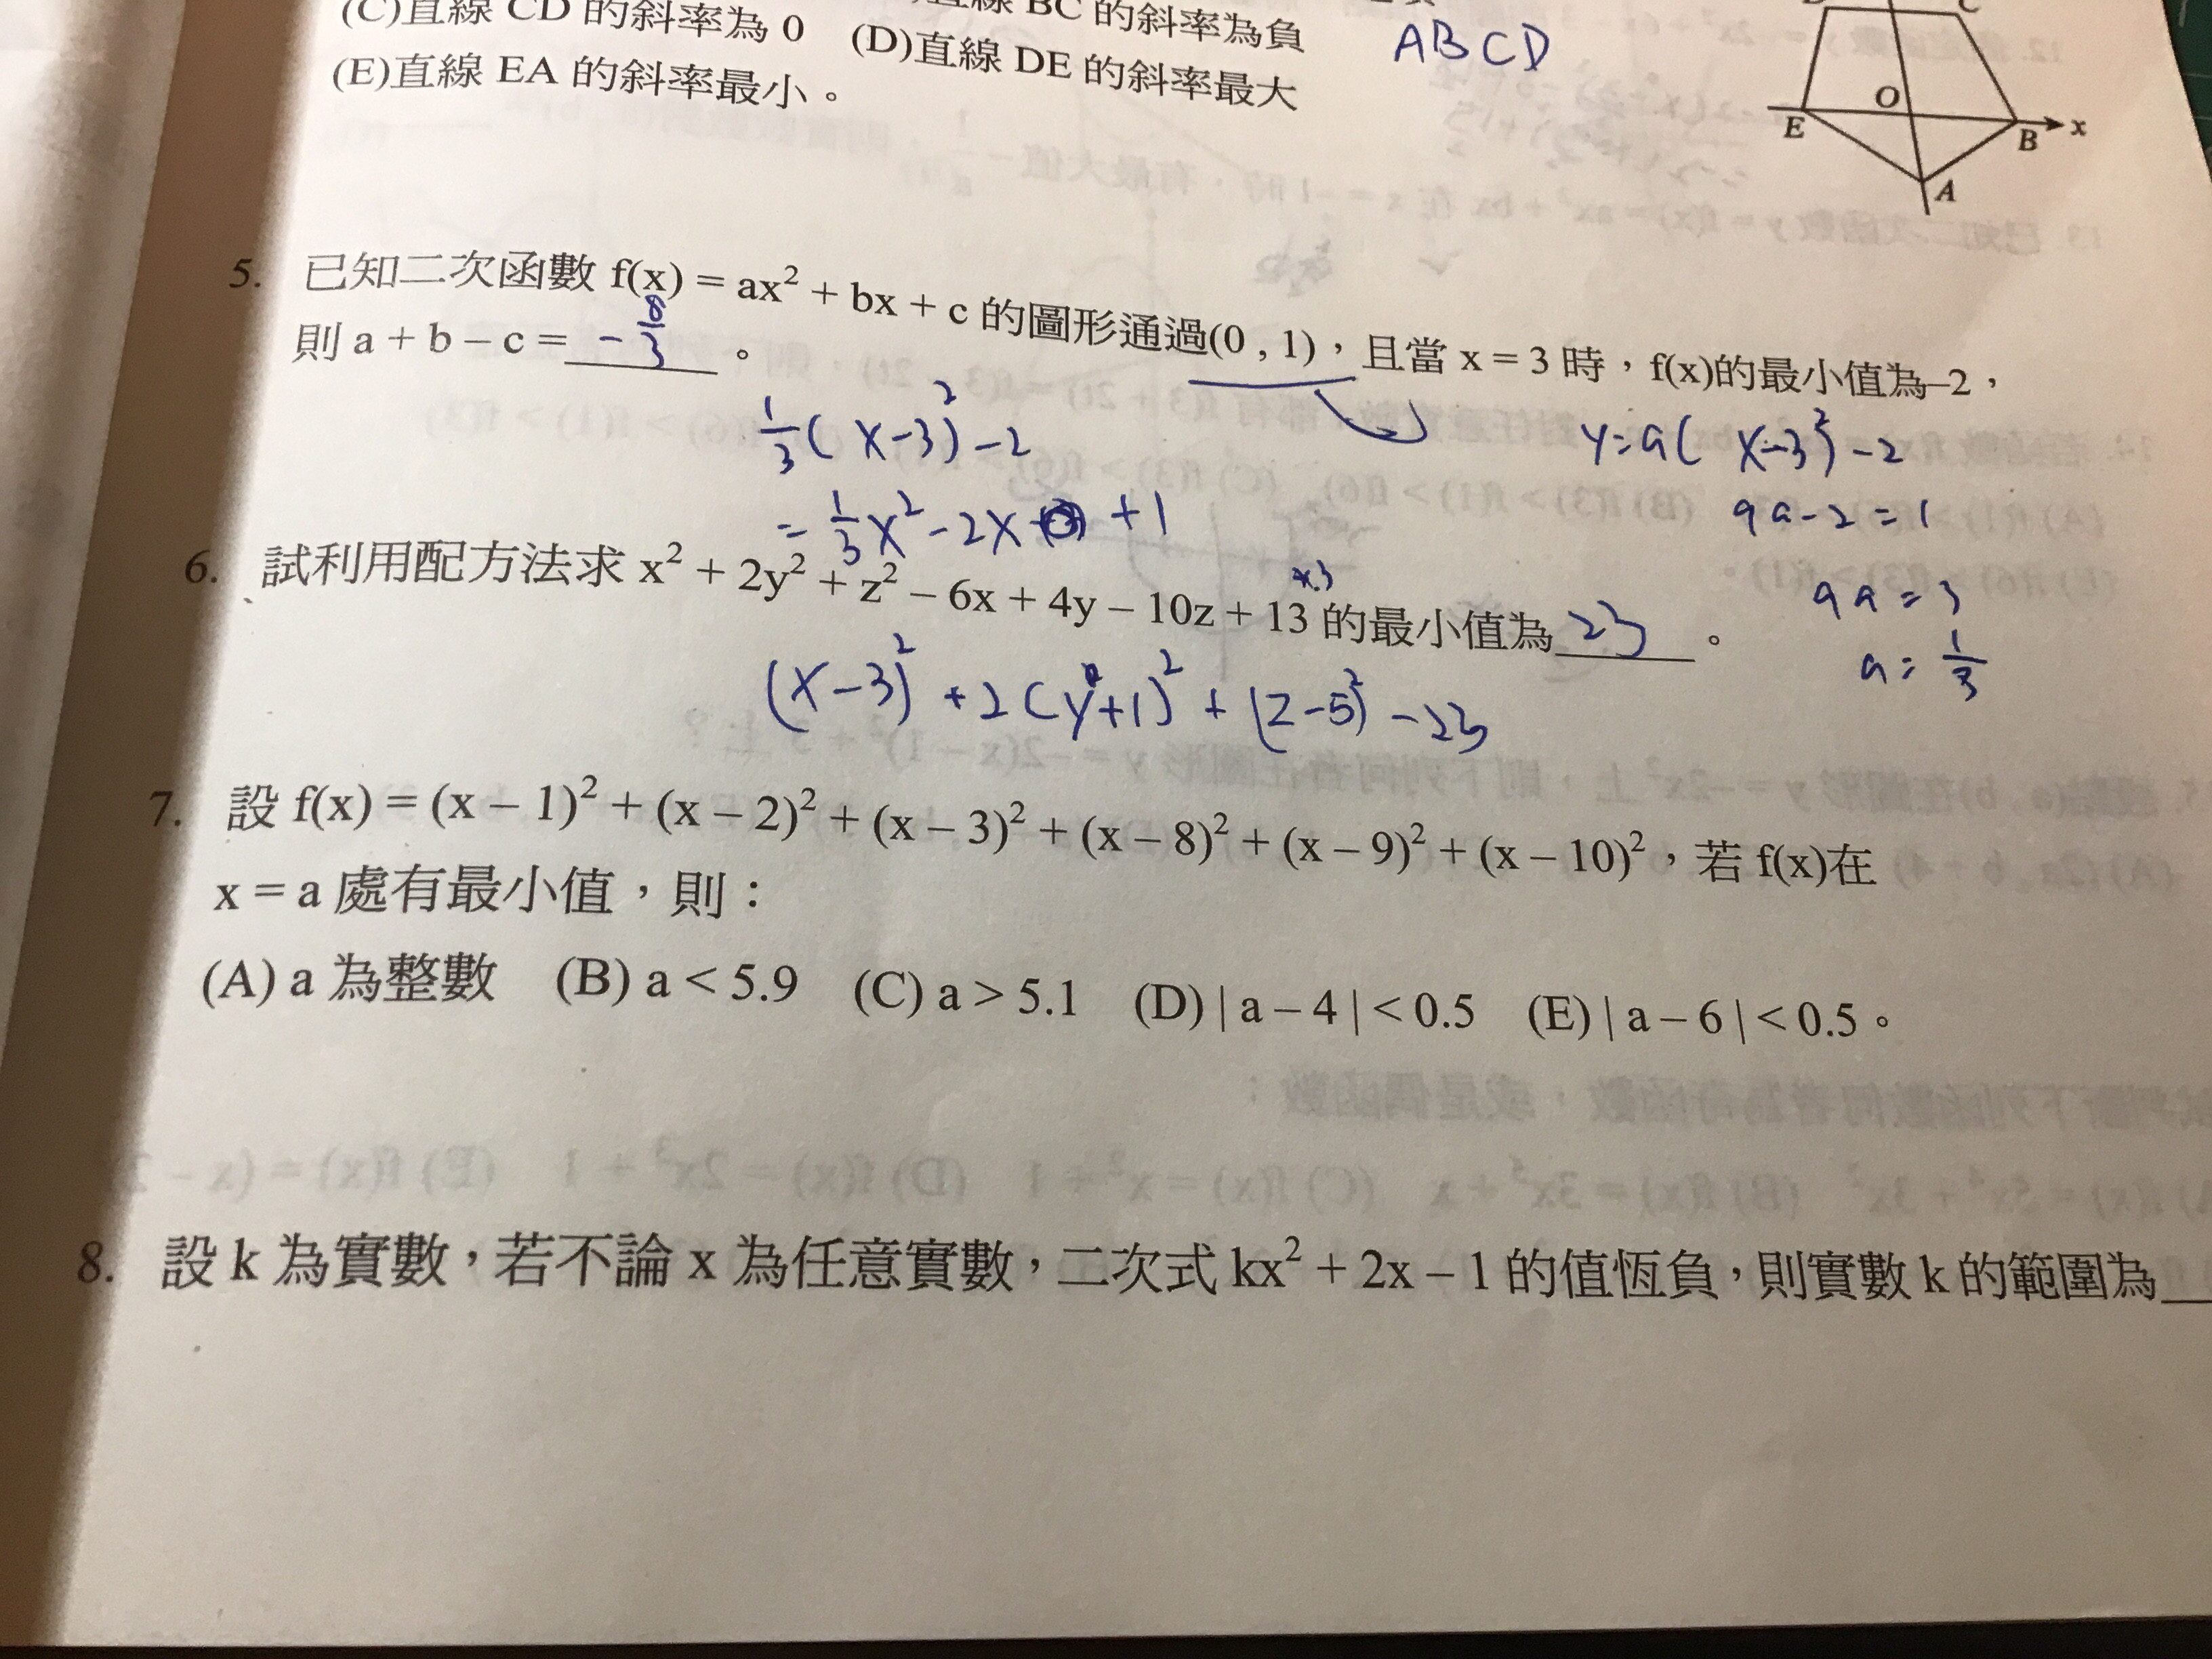 (C)直線 CD 的斜率為 0 (D)直線 DE 的斜率最大
BC 的斜率為負
(E)直線 EA 的斜率最小。
ABCD
C
O
E
B
x
A
5. 已知二次函數 f(x) = ax² + bx + c 的圖形通過(0 , 1)，且當 x = 3 時，f(x)的最小值為–2，
則 a + b – c = -8/3 。
1/3(x-3)²-2
= 1/3x²-2x +1
y=a(x-3)²-2
9a-2=1
9a=3
a=1/3
6. 試利用配方法求 x² + 2y² + z² – 6x + 4y – 10z + 13 的最小值為 23 。
(x-3)²+2(y+1)²+(z-5)²-23
7. 設 f(x) = (x – 1)² + (x – 2)² + (x – 3)² + (x – 8)² + (x – 9)² + (x – 10)²，若 f(x)在
x = a 處有最小值，則：
(A) a 為整數 (B) a < 5.9 (C) a > 5.1 (D) | a – 4 | < 0.5 (E) | a – 6 | < 0.5。
8. 設 k 為實數，若不論 x 為任意實數，二次式 kx² + 2x – 1 的值恆負，則實數 k 的範圍為